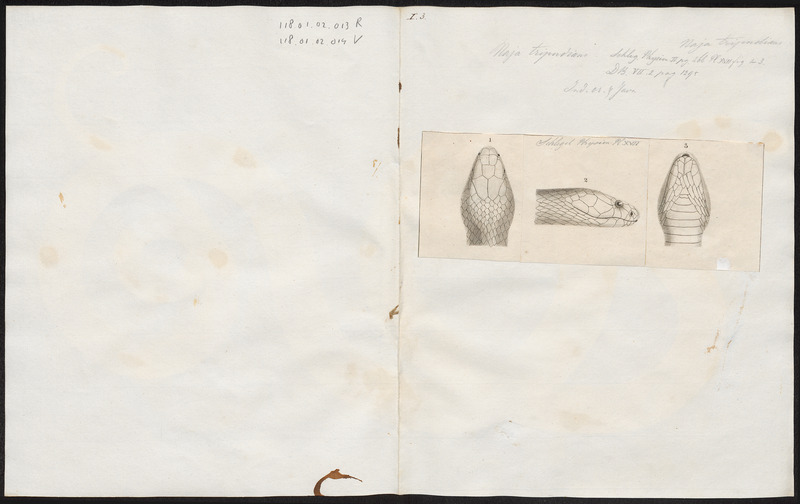 118.01.02.013 R
118.01.02.014 V
I.3.
Naja tripudians
Naja tripudians
Schleg. Physion. II pg. Pl. XVII fig. 1-3.
D.B. VII. 2 pag 1293
Ind. or. & Java
Schlegel Physion. Pl. XVII
1
2
3